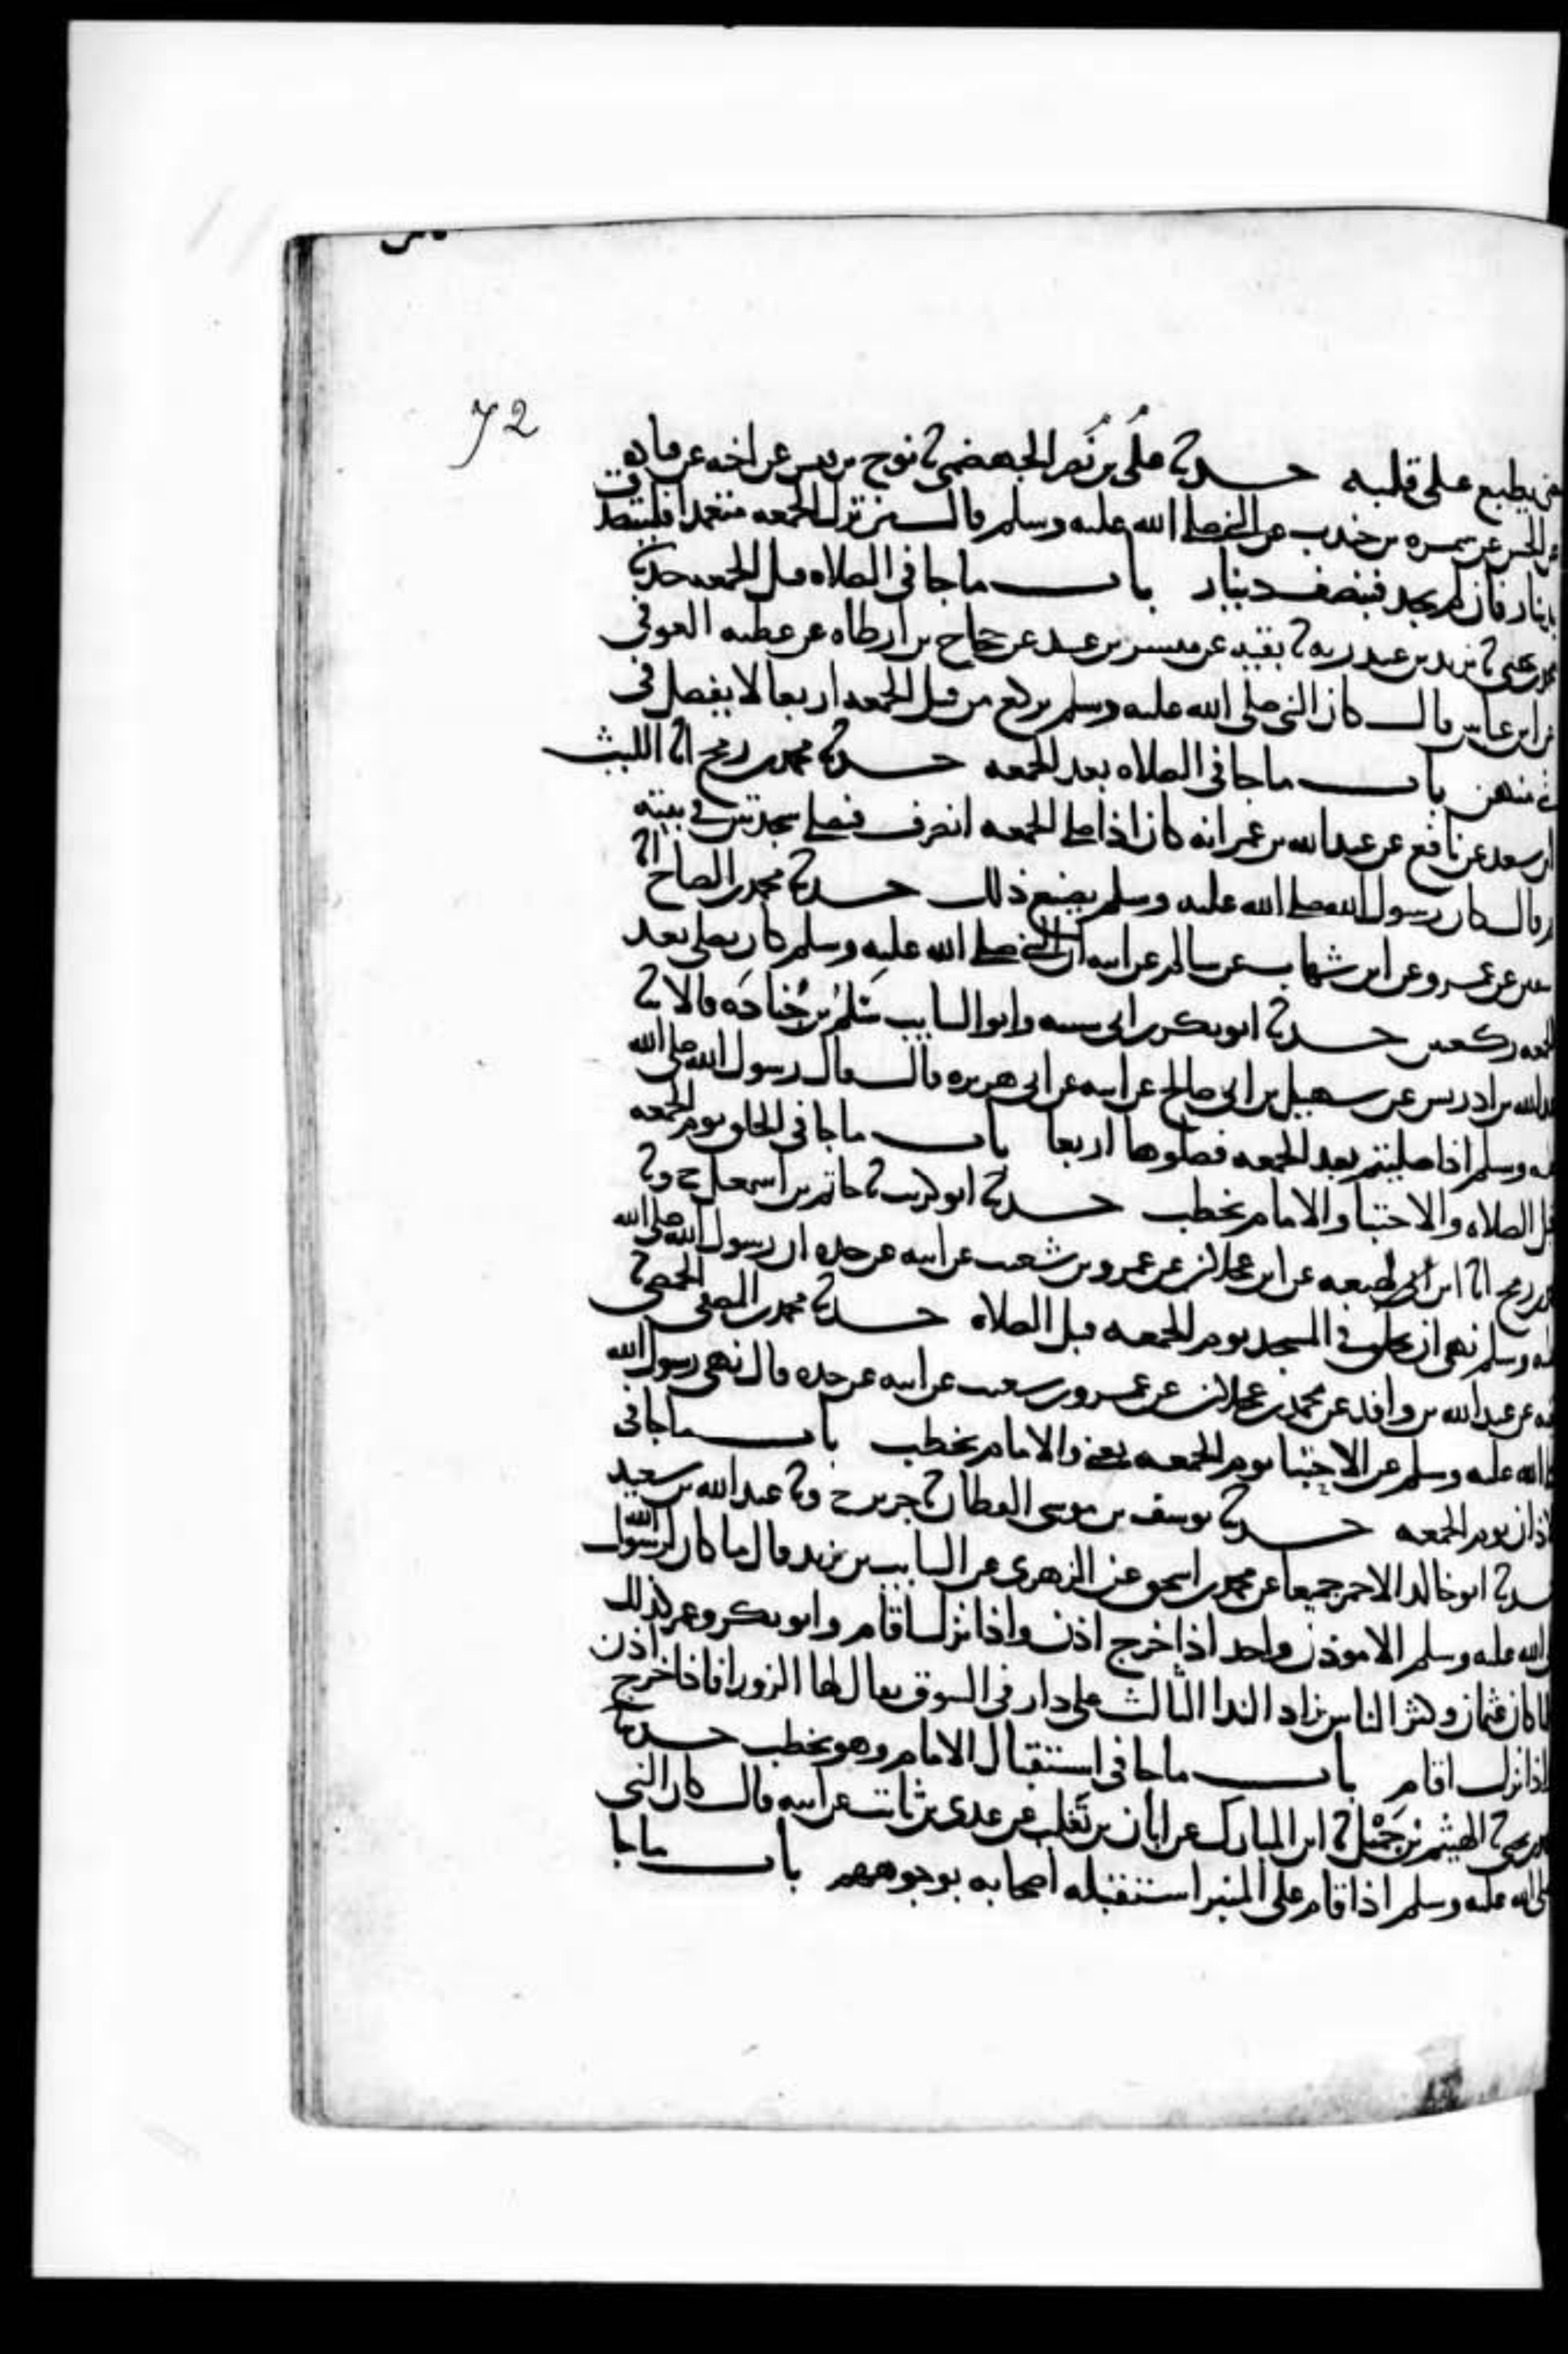 72
يطبع على قلبه حدثنا علي بن نصر الجهضمي ثنا نوح بن قيس عن اخيه عن قتاده
عن الحسن عن سمره بن جندب عن النبي صلى الله عليه وسلم قال من ترك الجمعه متعمدا فليتصدق
بدينار فان لم يجد فبنصف دينار باب ما جا في الصلاه قبل الجمعه حدثنا
محمد بن يحيى ثنا يزيد بن عبد ربه ثنا بقيه عن مبشر بن عبيد عن حجاج بن ارطاه عن عطيه العوفي
عن ابن عباس قال كان النبي صلى الله عليه وسلم يركع من قبل الجمعه اربعا لا يفصل في
شي منهن باب ما جا في الصلاه بعد الجمعه حدثنا محمد بن رمح انا الليث
ابن سعد عن نافع عن عبد الله بن عمر انه كان اذا صلى الجمعه انصرف فصلى سجدتين في بيته
ثم قال كان رسول الله صلى الله عليه وسلم يصنع ذلك حدثنا محمد بن الصباح انا
سفين عن عمرو عن ابن شهاب عن سالم عن ابيه ان النبي صلى الله عليه وسلم كان يصلي بعد
الجمعه ركعتين حدثنا ابو بكر بن ابي شيبه وابو السايب سلم بن جناده قالا ثنا
عبد الله بن ادريس عن سهيل بن ابي صالح عن ابيه عن ابي هريره قال قال رسول الله صلى الله
عليه وسلم اذا صليتم بعد الجمعه فصلوها اربعا باب ما جا في الحلق يوم الجمعه
قبل الصلاه والاحتبا والامام يخطب حدثنا ابو كريب ثنا حاتم بن اسمعيل ح وثنا
محمد بن رمح انا ابن لهيعه عن ابن عجلان عن عمرو بن شعيب عن ابيه عن جده ان رسول الله صلى الله
عليه وسلم نهى ان يحلق في المسجد يوم الجمعه قبل الصلاه حدثنا محمد بن المصفى الحمصي ثنا
بقيه عن عبد الله بن واقد عن محمد بن عجلان عن عمرو بن شعيب عن ابيه عن جده قال نهى رسول الله
صلى الله عليه وسلم عن الاحتبا يوم الجمعه يعني والامام يخطب باب ما جا في
الاذان يوم الجمعه حدثنا يوسف بن موسى القطان ثنا جرير ح وثنا عبد الله بن سعيد
حدثنا ابو خالد الاحمر جميعا عن محمد بن اسحق عن الزهري عن السايب بن يزيد قال ما كان لرسول الله
صلى الله عليه وسلم الا موذن واحد اذا خرج اذن واذا نزل اقام وابو بكر وعمر كذلك
فلما كان عثمان وكثر الناس زاد الندا الثالث على دار في السوق يقال لها الزورا فاذا خرج اذن
واذا نزل اقام باب ما جا في استقبال الامام وهو يخطب حدثنا
محمد بن يحيى ثنا الهيثم بن جميل ثنا ابن المبارك عن ابان بن تغلب عن عدي بن ثابت عن ابيه قال كان النبي
صلى الله عليه وسلم اذا قام على المنبر استقبله اصحابه بوجوههم باب ما جا